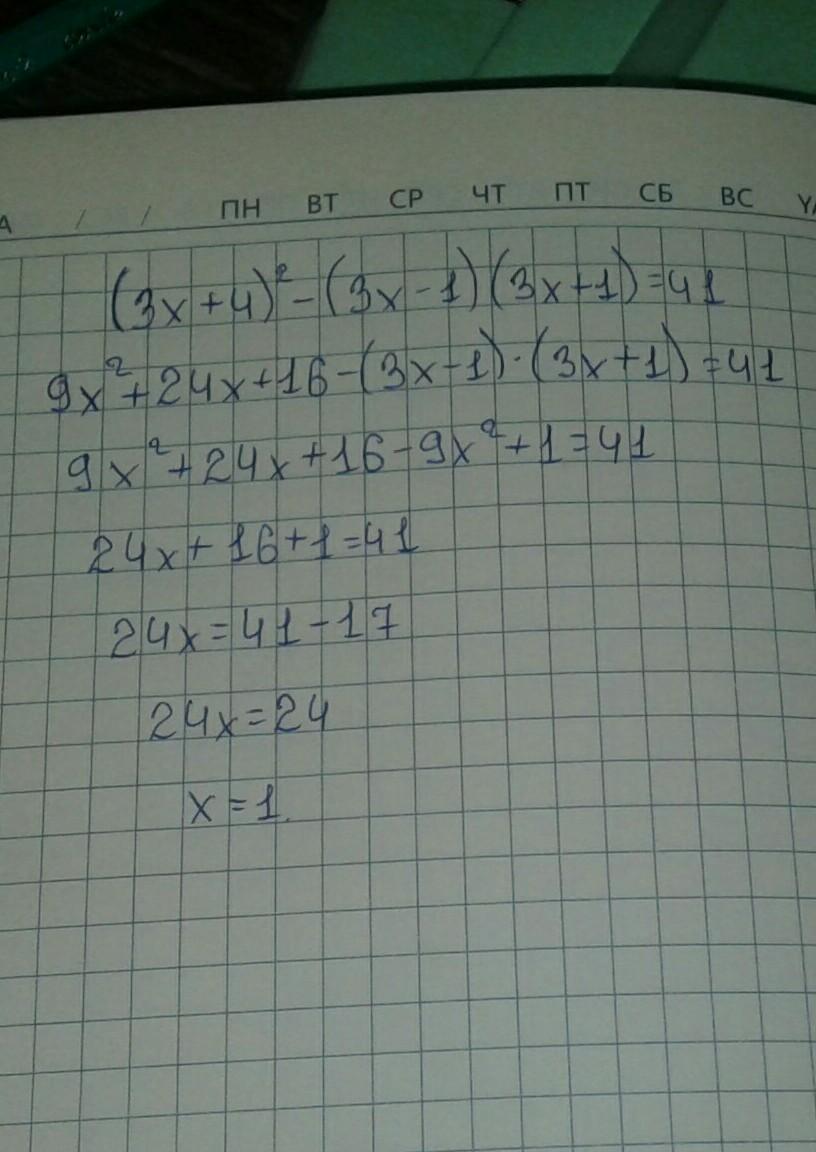 ПН ВТ СР ЧТ ПТ СБ ВС
(3x+4)²-(3x-1)(3x+1)=41
9x²+24x+16-(3x-1)·(3x+1)=41
9x²+24x+16-9x²+1=41
24x+16+1=41
24x=41-17
24x=24
x=1